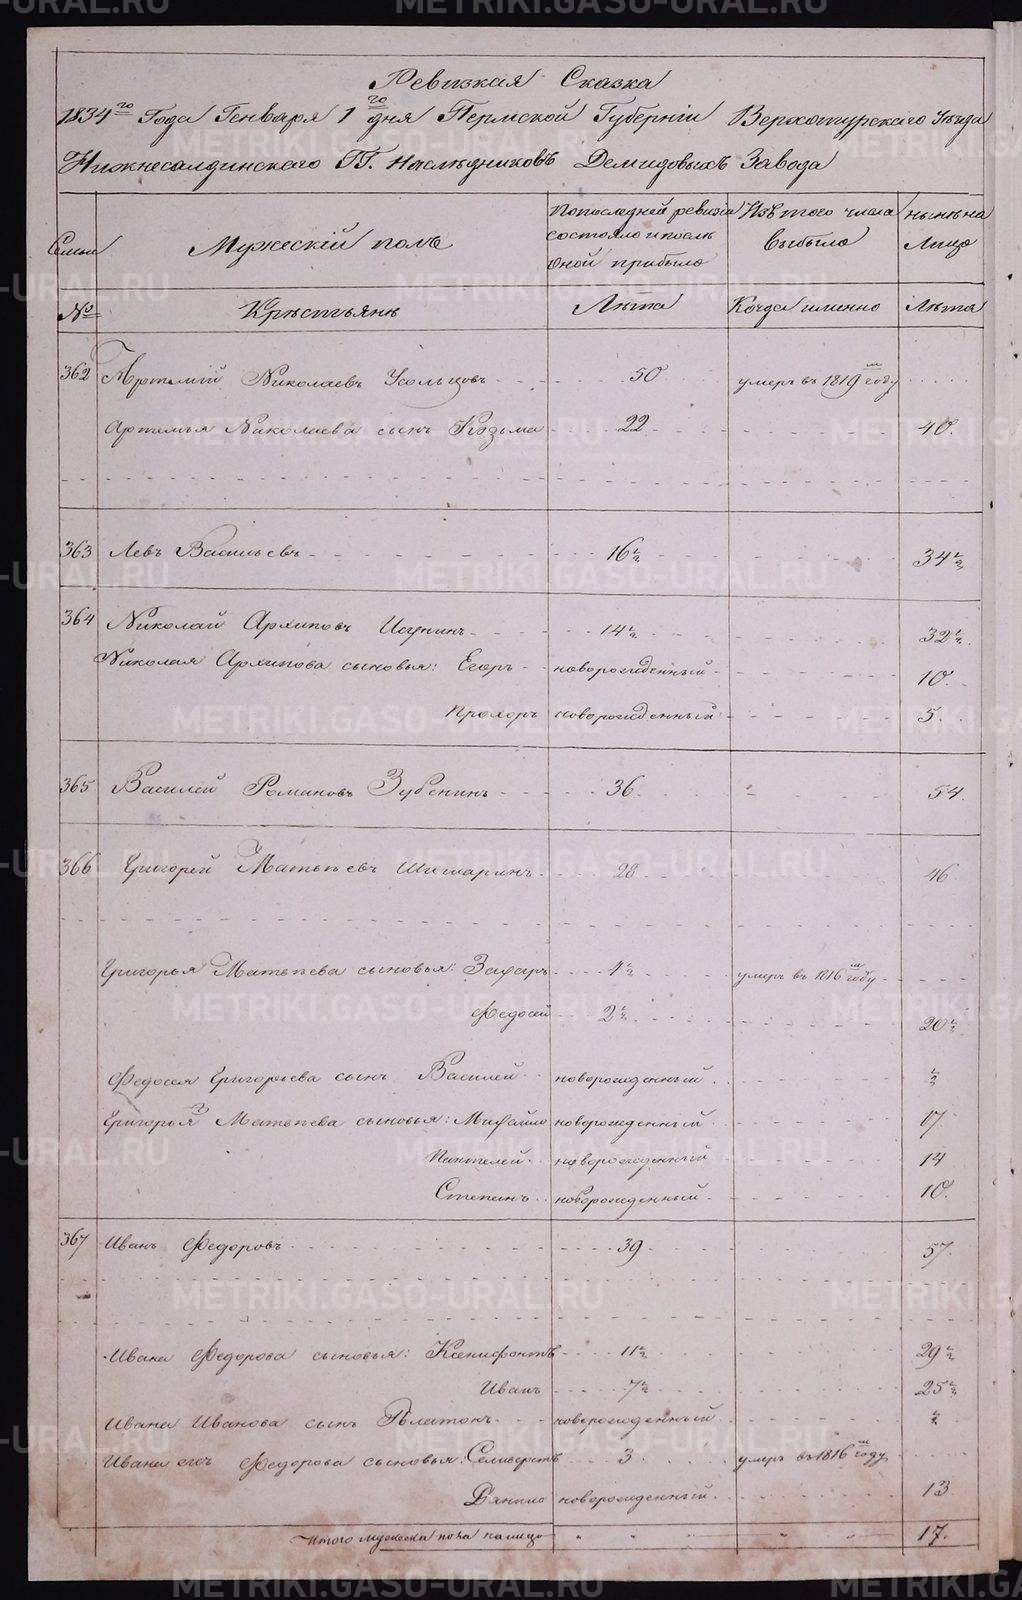 Ревизкая Сказка
1834го Года Генваря 1го дня Пермской Губернiи Верхотурскаго Уѣзда
Нижнесалдинскаго ГГ. Наслѣдниковъ Демидовыхъ Завода
Семьи Мужескiй полъ По последней ревизiи состояло и послѣ оной прибыло Изъ того числа выбыло нынѣ на лицо
№ Крѣстьянѣ Лѣта Когда именно Лѣта
362 Артемiй Николаевъ Усольцовъ 50 умеръ въ 1819м году
Артемья Николаева сынъ Козьма 22 40
363 Левъ Васильевъ 16½ 34½
364 Николай Архиповъ 14½ 32½
Николая Архипова сыновья: Егоръ новорожденный 10
Прохоръ новорожденный 5
365 Василей Романовъ Зубенинъ 36 54
366 Григорей Матвѣевъ Шишаринъ 28 46
Григорья Матвѣева сыновья: Захаръ 4½ умеръ въ 1816м году
Федосей 2½ 20½
Федосея Григорьева сынъ Василей новорожденный ½
Григорья Матвѣева сыновья: Михайло новорожденный 17
Пантелей новорожденный 14
Степанъ новорожденный 10
367 Иванъ Федоровъ 39 57
Ивана Федорова сыновья: Ксенифонтъ 11½ 29½
Иванъ 7½ 25½
Ивана Иванова сынъ Платонъ новорожденный ½
Ивана Федорова сыновья: Селиверстъ 3 умеръ въ 1816м году
Данило новорожденный 13
Итого мужеска пола налицо 17.
METRIKI.GASO-URAL.RU